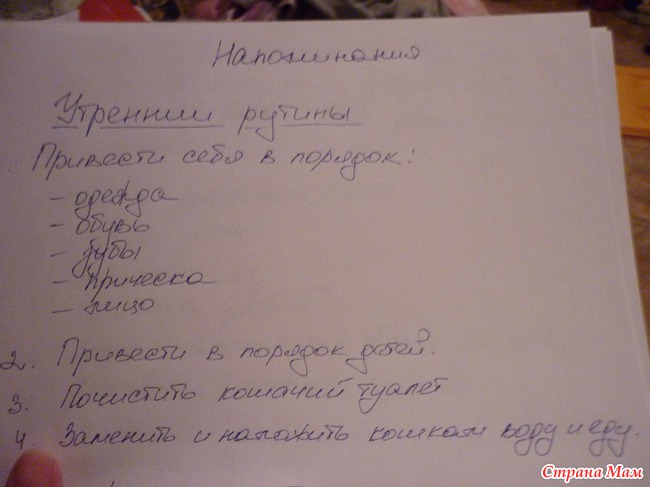 Напоминания
Утреннии рутины
Привести себя в порядок:
- одежда
- обувь
- зубы
- прическа
- лицо
2. Привести в порядок детей.
3. Почистить кошачий туалет
4. Заменить и наложить кошкам воду и еду.
Страна Мам